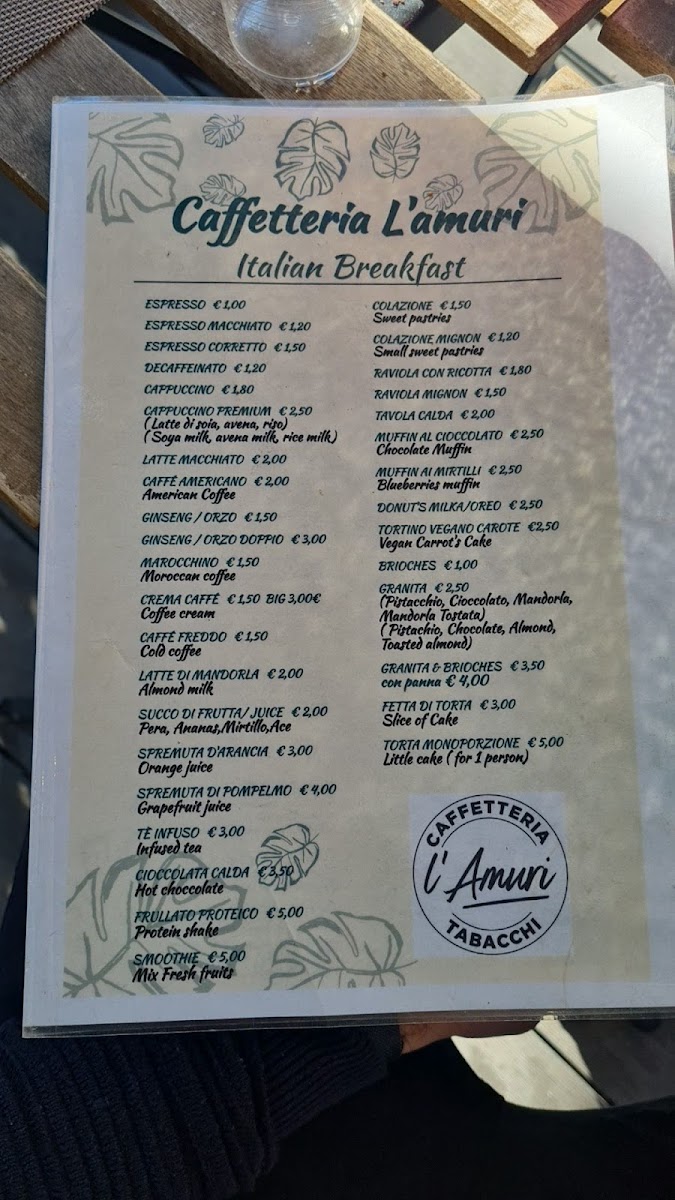 Caffetteria L'amuri
Italian Breakfast
ESPRESSO € 1,00
ESPRESSO MACCHIATO € 1,20
ESPRESSO CORRETTO € 1,50
DECAFFEINATO € 1,20
CAPPUCCINO € 1,80
CAPPUCCINO PREMIUM € 2,50
( Latte di soia, avena, riso)
( Soya milk, avena milk, rice milk)
LATTE MACCHIATO € 2,00
CAFFÉ AMERICANO € 2,00
American Coffee
GINSENG / ORZO € 1,50
GINSENG / ORZO DOPPIO € 3,00
MAROCCHINO € 1,50
Moroccan coffee
CREMA CAFFÉ € 1,50 BIG 3,00€
Coffee cream
CAFFÉ FREDDO € 1,50
Cold coffee
LATTE DI MANDORLA € 2,00
Almond milk
SUCCO DI FRUTTA/ JUICE € 2,00
Pera, Ananas,Mirtillo,Ace
SPREMUTA D'ARANCIA € 3,00
Orange juice
SPREMUTA DI POMPELMO € 4,00
Grapefruit juice
TÈ INFUSO € 3,00
Infused tea
CIOCCOLATA CALDA € 3,50
Hot choccolate
FRULLATO PROTEICO € 5,00
Protein shake
SMOOTHIE € 5,00
Mix Fresh fruits
COLAZIONE € 1,50
Sweet pastries
COLAZIONE MIGNON € 1,20
Small sweet pastries
RAVIOLA CON RICOTTA € 1,80
RAVIOLA MIGNON € 1,50
TAVOLA CALDA € 2,00
MUFFIN AL CIOCCOLATO € 2,50
Chocolate Muffin
MUFFIN AI MIRTILLI € 2,50
Blueberries muffin
DONUT'S MILKA/OREO € 2,50
TORTINO VEGANO CAROTE €2,50
Vegan Carrot's Cake
BRIOCHES € 1,00
GRANITA € 2,50
(Pistacchio, Cioccolato, Mandorla,
Mandorla Tostata)
( Pistachio, Chocolate, Almond,
Toasted almond)
GRANITA & BRIOCHES € 3,50
con panna € 4,00
FETTA DI TORTA € 3,00
Slice of Cake
TORTA MONOPORZIONE € 5,00
Little cake ( for 1 person)
CAFFETTERIA
l'Amuri
TABACCHI